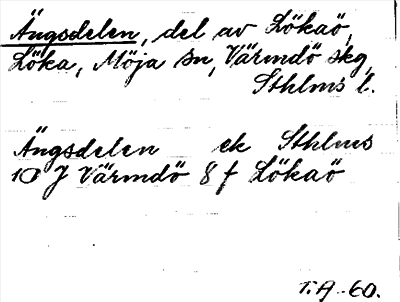 Ängsdelen, del av Lökaö,
Löka, Möja sn, Värmdö skg,
Sthlms l.
Ängsdelen ek Sthlms
10 J Värmdö 8 f Lökaö
T.A -60.